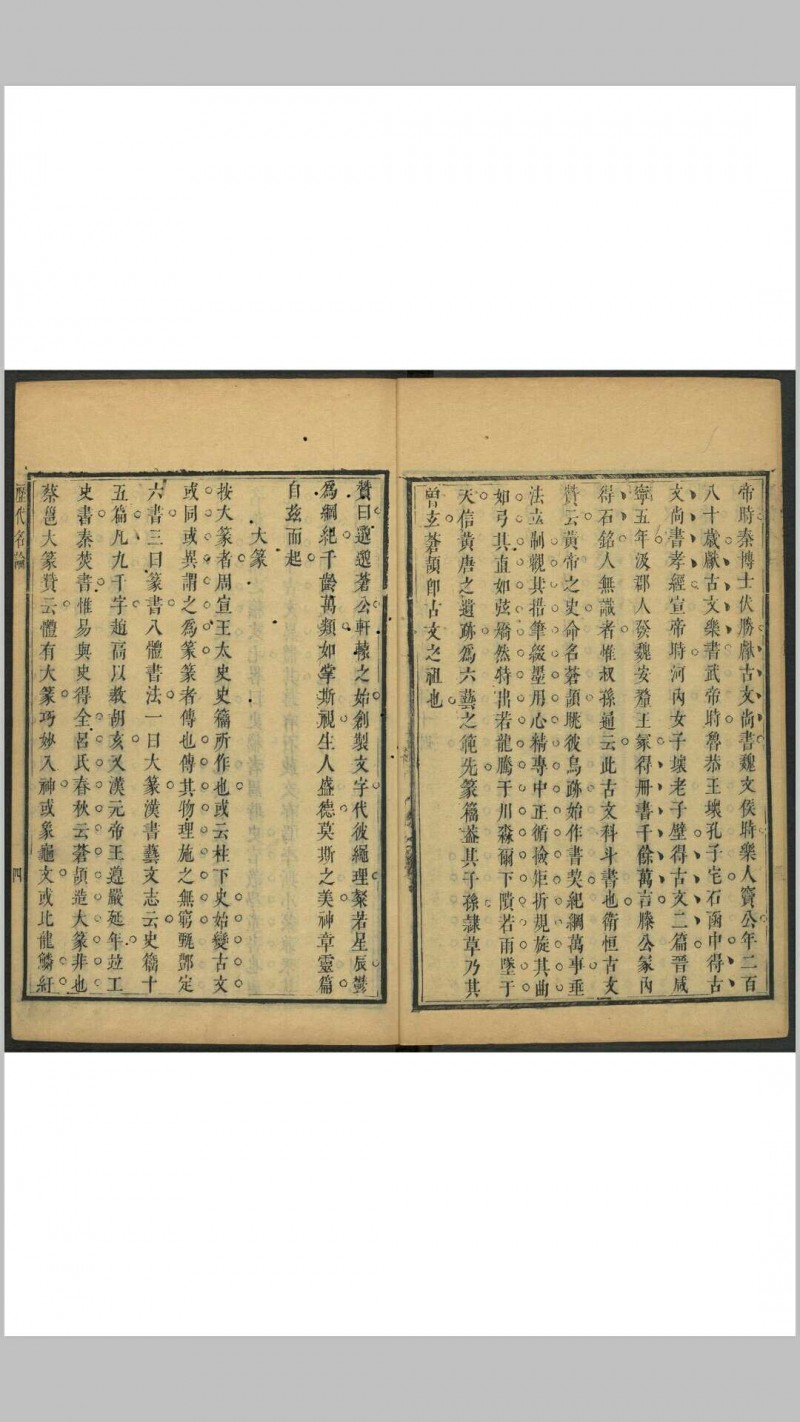 帝時秦博士伏勝獻古文尚書魏文侯時樂人竇公年二百
八十歲獻古文樂書武帝時魯恭王壞孔子宅石函中得古
文尚書孝經宣帝時河內女子壞老子壁得古文二篇晉咸
寧五年汲郡人發魏安釐王冢得冊書千餘萬言滕公冢內
得石銘人無識者惟叔孫通云此古文科斗書也衛恒古文
贊云黃帝之史命名蒼頡眺彼鳥跡始作書契紀綱萬事垂
法立制觀其措筆綴墨用心精專中正循檢矩折規旋其曲
如弓其直如弦矯然特出若龍騰于川淼爾下隤若雨墜于
天信黃唐之遺跡爲六藝之範先篆籀葢其子孫隸草乃其
曾玄蒼頡卽古文之祖也
贊曰邈邈蒼公軒轅之始創製文字代彼繩理粲若星辰鬱
爲綱紀千齡萬類如掌斯視生人盛德莫斯之美神章靈篇
自茲而起
大篆
按大篆者周宣王太史史籀所作也或云柱下史始變古文
或同或異謂之爲篆篆者傳也傳其物理施之無窮甄酆定
六書三曰篆書八體書法一曰大篆漢書藝文志云史籀十
五篇凡九千字趙高以教胡亥又漢元帝王遵嚴延年竝工
史書秦焚書惟易與史得全呂氏春秋云蒼頡造大篆非也
蔡邕大篆贊云體有大篆巧妙入神或象龜文或比龍鱗紆
歷代名論
四